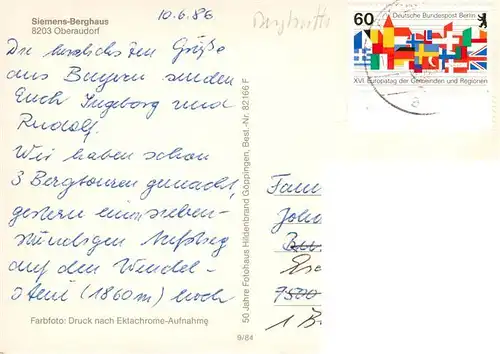 Siemens-Berghaus
8203 Oberaudorf
10.6.86
Die herzlichsten Grüße
aus Bayern senden
Euch Ingeborg und
Rudolf.
Wir haben schon
3 Bergtouren gemacht,
gestern einen sieben-
stündigen Aufstieg
auf den Wendel-
stein (1860m) hoch
Farbfoto: Druck nach Ektachrome-Aufnahme
9/84
50 Jahre Fotohaus Hildenbrand Göppingen, Best.-Nr. 82166 F
60
Deutsche Bundespost Berlin
XVI. Europatag der Gemeinden und Regionen
Fam
John
7500
1 B